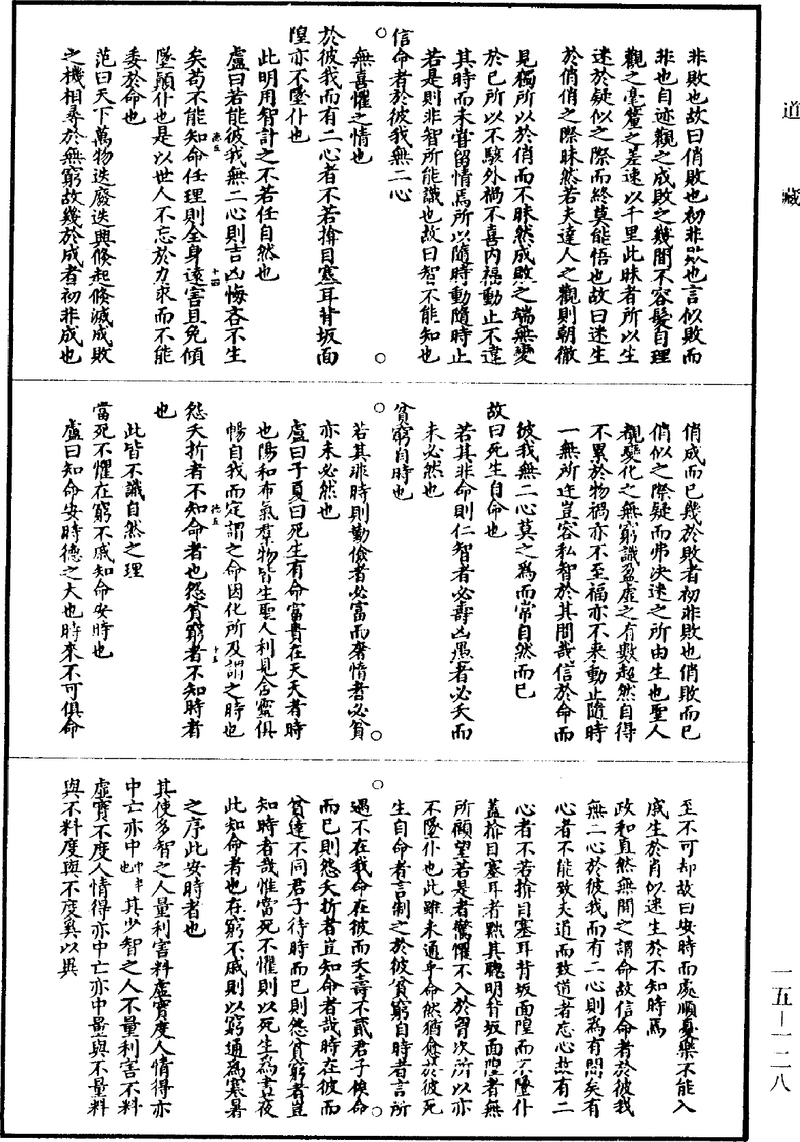 道藏
非敗也故曰俏敗也初非敗也言似敗而
非也自迹觀之成敗之幾間不容髮自理
觀之毫釐之差速以千里此昧者所以生
迷於疑似之際而終莫能悟也故曰迷生
於俏俏之際昧然若夫達人之觀則朝徹
見獨所以於俏而不昧然成敗之端無變
於已所以不駭外禍不喜内福動止不違
其時而未嘗留情焉所以隨時動隨時止
若是則非智所能識也故曰智不能知也
信命者於彼我無二心
無喜懼之情也
於彼我而有二心者不若揜目塞耳背坂面
隍亦不墜仆也
此明用智計之不若任自然也
盧曰若能彼我無二心則吉凶悔吝不生
矣苟不能知命任理則全身遠害且免傾
墜顛仆也是以世人不忘於力求而不能
委於命也
范曰天下萬物迭廢迭興倏起倏滅成敗
之機相尋於無窮故幾於成者初非成也
俏成而已幾於敗者初非敗也俏敗而已
俏似之際疑而弗决迷之所由生也聖人
觀變化之無窮識盈虛之有數超然自得
不累於物禍亦不至福亦不來動止隨時
一無所迕豈容私智於其間哉信於命而
彼我無二心莫之為而常自然而已
故曰死生自命也
若其非命則仁智者必壽凶愚者必夭而
未必然也
貧窮自時也
若其非時則勤儉者必富而奢惰者必貧
亦未必然也
盧曰子夏曰死生有命富貴在天天者時
也陽和布氣羣物皆生聖人利見含靈俱
暢自我而定謂之命因化所及謂之時也
怨夭折者不知命者也怨貧窮者不知時者
也
此皆不識自然之理
當死不懼在窮不戚知命安時也
盧曰知命安時德之大也時來不可俱命
至不可却故曰安時而處順憂樂不能入
戚生於肖似迷生於不知時焉
政和直然無間之謂命故信命者於彼我
無二心於彼我而有二心則為有間矣有
心者不能致夫道而致道者忘心然有二
心者不若揜目塞耳背坂面隍而不墜仆
蓋揜目塞耳者黜其聰明背坂面隍者無
所顧望若是者驚懼不入於胷次所以亦
不墜仆也此雖未通乎命然猶愈於彼死
生自命者言制之於彼貧窮自時者言所
遇不在我命在彼而夭壽不貳君子俟命
而已則怨夭折者豈知命者哉時在彼而
貧達不同君子待時而已則怨貧窮者豈
知時者哉惟當死不懼則以死生為晝夜
此知命者也在窮不戚則以窮通為寒暑
之序此安時者也
其使多智之人量利害料虛實度人情得亦
中亡亦中中半也其少智之人不量利害不料
虛實不度人情得亦中亡亦中量與不量料
與不料度與不度奚以異
一五—一二八